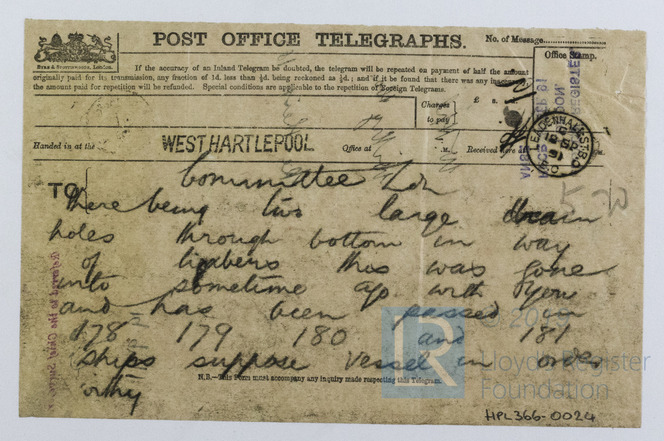 POST OFFICE TELEGRAPHS.
No. of Message
Office Stamp.
If the accuracy of an Inland Telegram be doubted, the telegram will be repeated on payment of half the amount
originally paid for its transmission, any fraction of 1d. less than ½d. being reckoned as ½d.; and if it be found that there was any inaccuracy
the amount paid for repetition will be refunded. Special conditions are applicable to the repetition of Foreign Telegrams.
Charges
to pay
£ s.
LEADENHALL ST. B.O.
SP
91
Handed in at the
WEST HARTLEPOOL
Office at
M.
Received here at
5
TO
Committee Ldn
There being two large drain
holes through bottom in way
of timbers this was gone
into sometime ago with you
and has been passed in
178 179 180 and 181
ships suppose vessel in order
N.B.—This Form must accompany any inquiry made respecting this Telegram.
LR
Lloyd's Register
Foundation
HPL366-0024